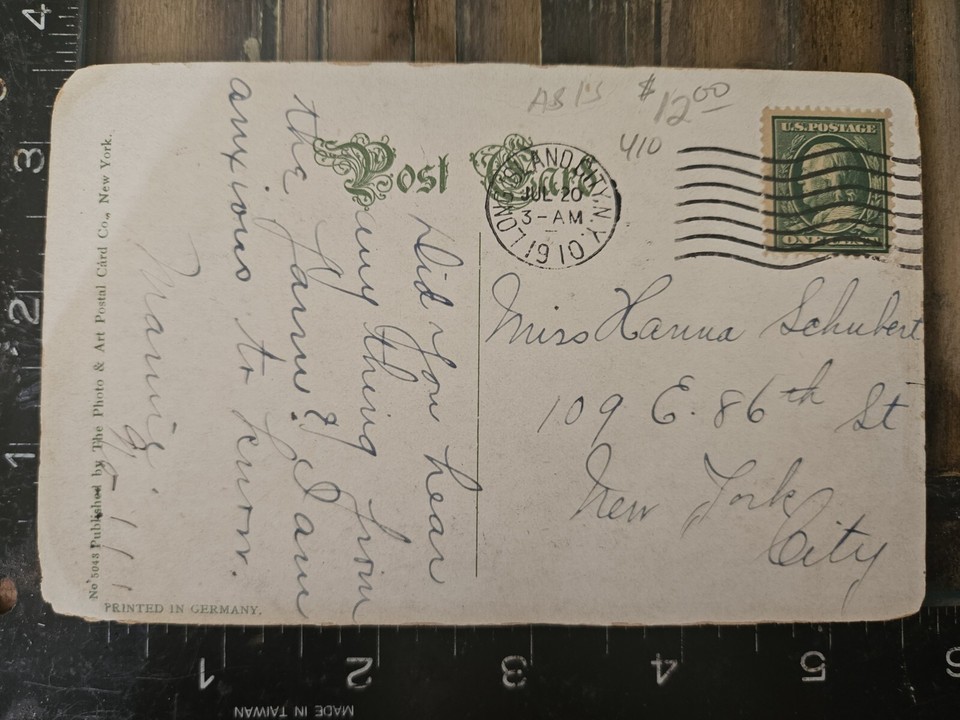 Post Card
AB 1's $12.00
410
LONG ISLAND CITY, N.Y.
JUL 20
3-AM
1910
U.S. POSTAGE
ONE CENT
Did you hear
any thing from
the Farm? I am
anxious to know.
Miss Hanna Schubert
109 E. 86th St
New York
City
No 5043 Published by The Photo & Art Postal Card Co., New York.
PRINTED IN GERMANY.
1 2 3 4
1 2 3 4 5 6
MADE IN TAIWAN